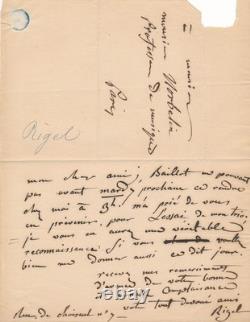 à monsieur
monsieur Norblin
Professeur de musique
Paris
Rigel
mon cher ami, Baillot ne pouvant
pas avant mardy prochain ce rendre
chez moi à 3h. m'a prié de vous
en prévenir, pour l'essai de mon trio,
je vous en aurez une véritable
reconnaissance. Si vous
bien me donner aussi ce dit jour.
recevez mes remerciemens
d'avance de votre bonne
complaisance
votre tout dévoué ami
rue de choiseul n° 7 Rigel